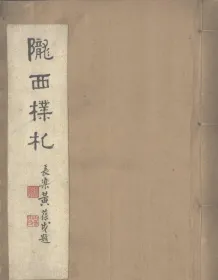 隴西揲札
長樂黃葆戉題